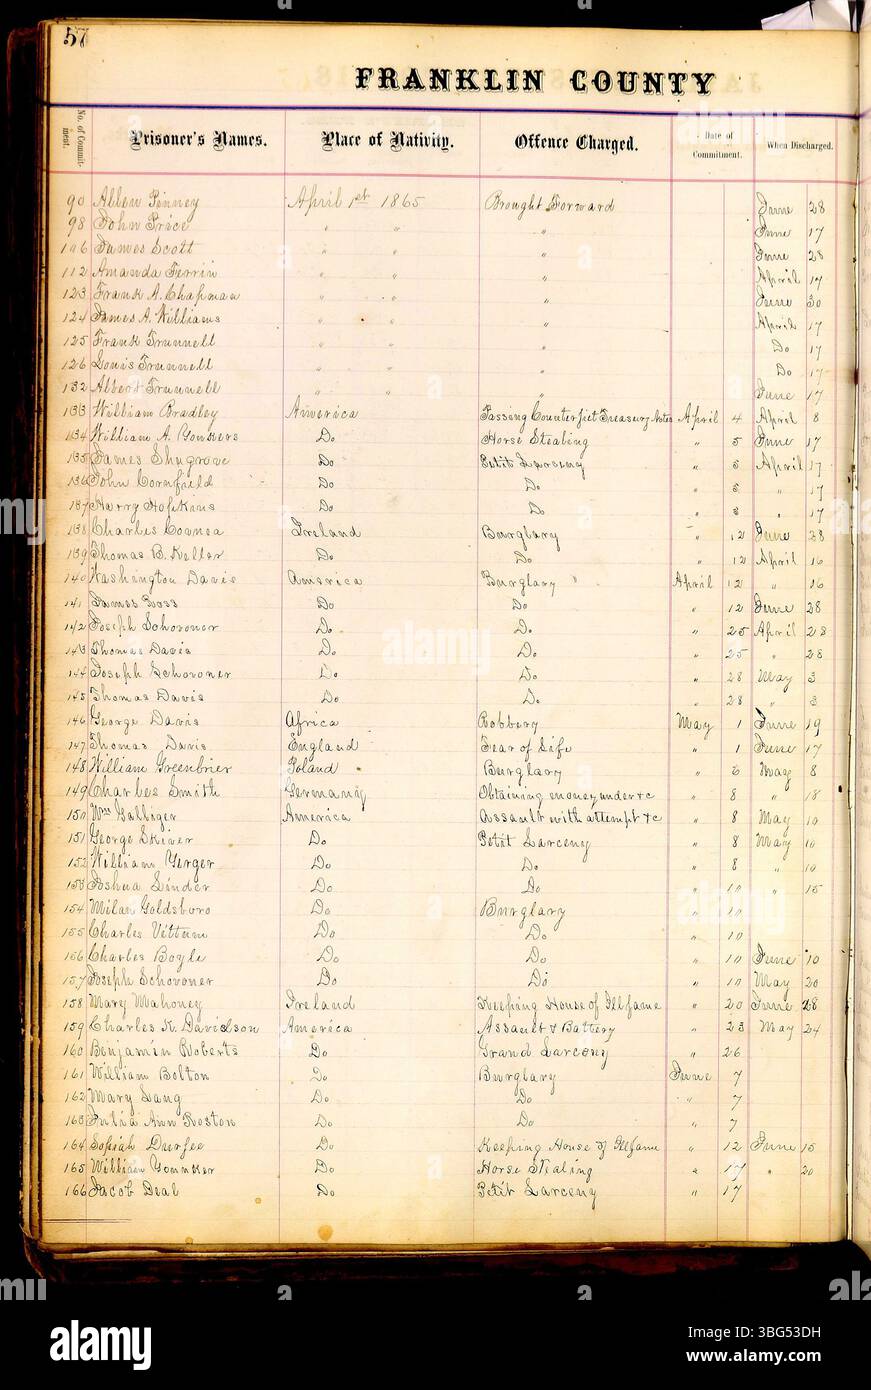 57
FRANKLIN COUNTY
No. of Commitment. Prisoner's Names. Place of Nativity. Offence Charged. Date of Commitment. When Discharged.
90 Allen Pinney April 1st 1865 Brought Forward June 28
98 John Price " " " June 17
106 James Scott " " " June 28
112 Amanda Ferrin " " " April 17
123 Frank A. Chapman " " " June 30
124 James A. Williams " " " April 17
125 Frank Trunnell " " " Do 17
126 Louis Trunnell " " " Do 17
132 Albert Trunnell " " " June 17
133 William Bradley America Passing Counterfiet Treasury Notes April 4 April 8
134 William A. Yonkers Do Horse Stealing " 5 June 17
135 James Shugrove Do Petit Larceny " 5 April 17
136 John Cornfield Do Do " 5 " 17
137 Harry Hopkins Do Do " 8 " 17
138 Charles Ireland Burglary " 12 June 28
139 Thomas B. Keller Do Do " 12 April 16
140 Washington Davis America Burglary " April 12 " 16
141 James Ross Do Do " 12 June 28
142 Joseph Schovoner Do Do " 25 April 28
143 Thomas Davis Do Do " 25 " 28
144 Joseph Schovoner Do Do " 28 May 3
145 Thomas Davis Do Do " 28 " 3
146 George Davis Africa Robbery May 1 June 19
147 Thomas Davis England Fear of Life " 1 June 17
148 William Greenbrier Poland Burglary " 6 May 8
149 Charles Smith Germany Obtaining money under &c " 8 " 18
150 Wm Galliger America Assault with attempt &c " 8 May 10
151 George Skiver Do Petit Larceny " 8 May 10
152 William Yerger Do Do " 8 " 10
153 Joshua Linder Do Do " 10 " 15
154 Milan Goldsboro Do Burglary " 10
155 Charles Vittum Do Do " 10
156 Charles Boyle Do Do " 10 June 10
157 Joseph Schovoner Do Do " 10 May 20
158 Mary Mahoney Ireland Keeping House of Illfame " 20 June 28
159 Charles K. Davidson America Assault & Battery " 23 May 24
160 Benjamin Roberts Do Grand Larceny " 26
161 William Bolton Do Burglary June 7
162 Mary Lang Do Do " 7
163 Julia Ann Roston Do Do " 7
164 Sopiah Durfee Do Keeping House of Illfame " 12 June 15
165 William Yonnker Do Horse Stealing " 17 " 20
166 Jacob Deal Do Petit Larceny " 17
alamy
alamy
Image ID: 3BG53DH
www.alamy.com